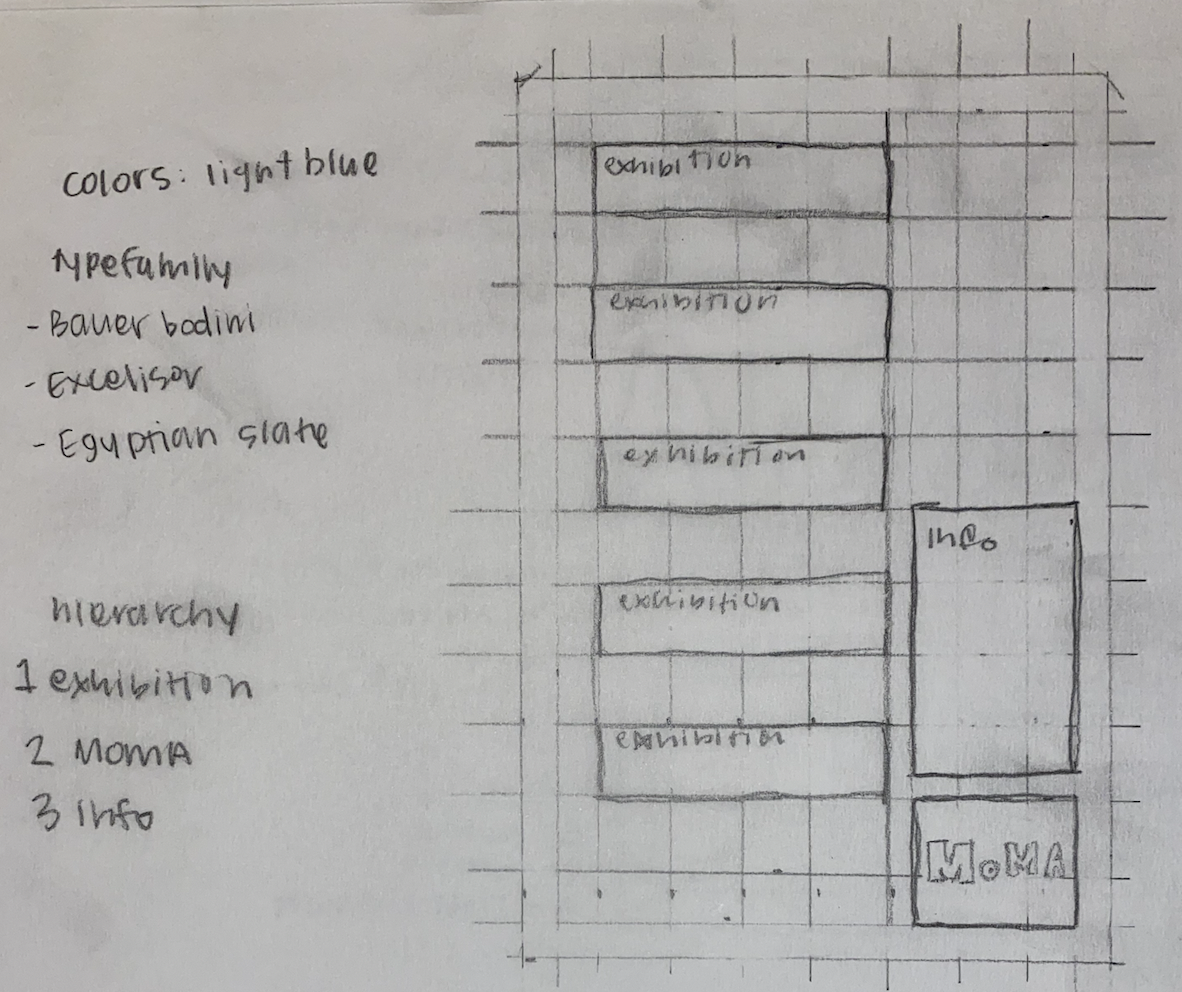 colors: light blue
typefamily
- Bauer bodini
- Excelisor
- Egyptian slate
hierarchy
1 exhibition
2 MomA
3 info
exhibition
exhibition
exhibition
exhibition
exhibition
info
MoMA